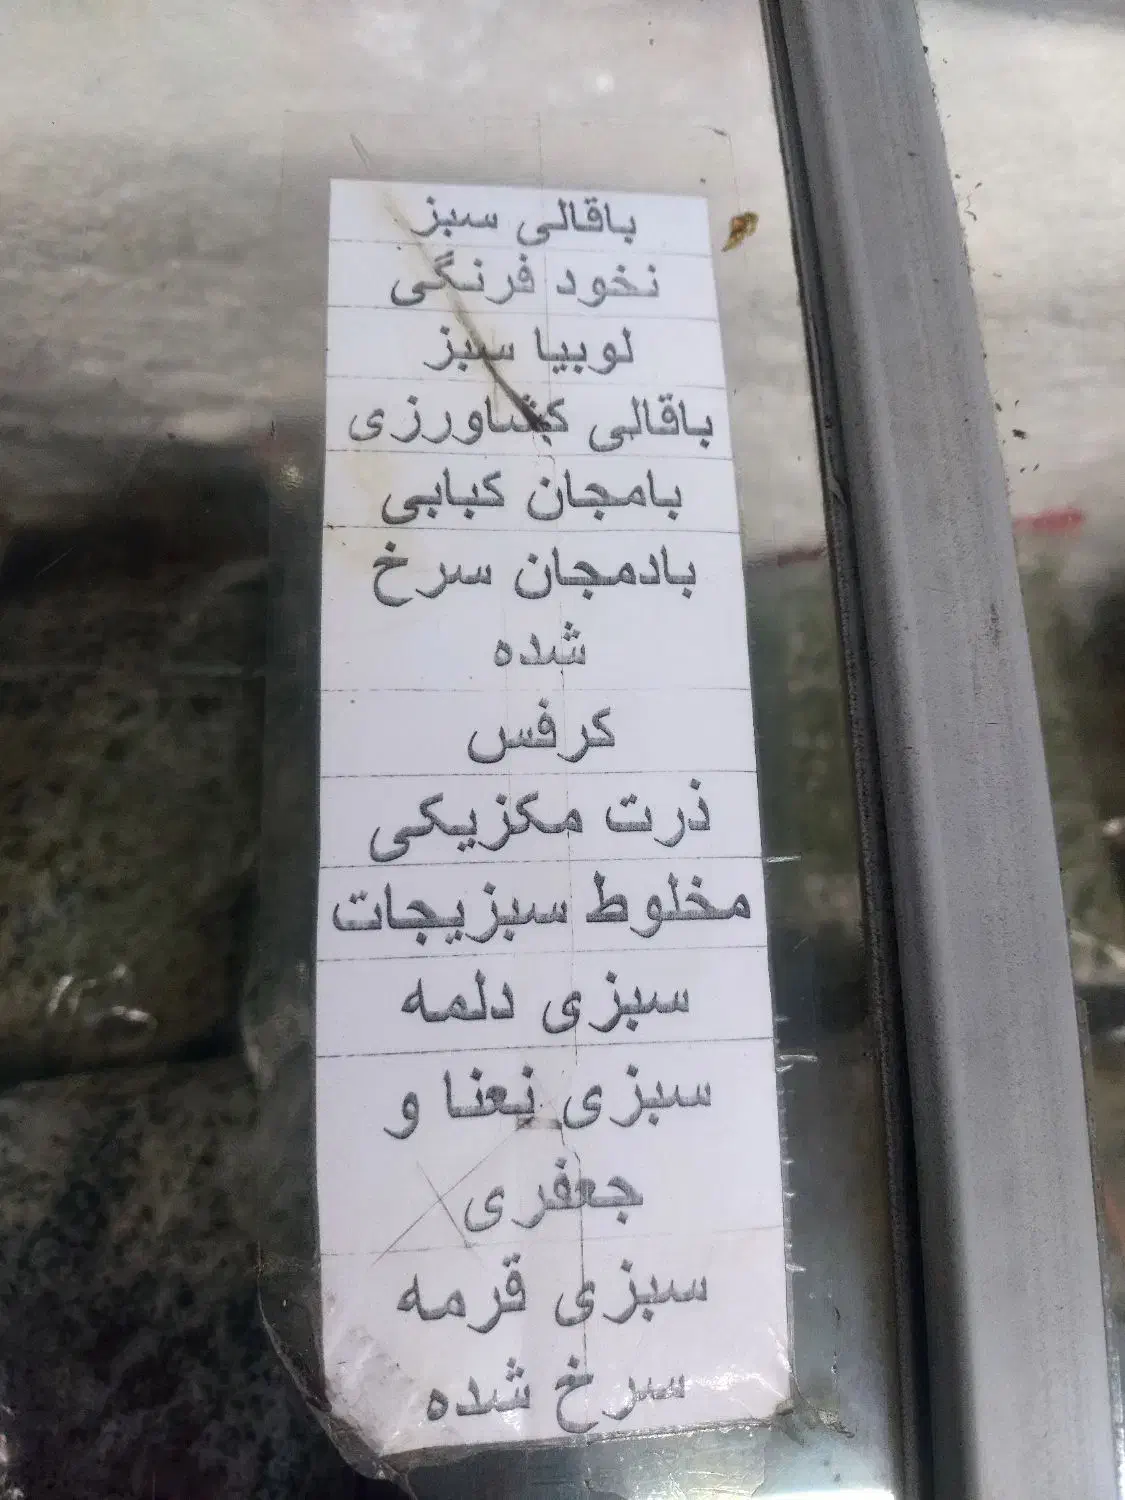 باقالی سبز
نخود فرنگی
لوبیا سبز
باقالی کشاورزی
بامجان کبابی
بادمجان سرخ
شده
کرفس
ذرت مکزیکی
مخلوط سبزیجات
سبزی دلمه
سبزی نعنا و
جعفری
سبزی قرمه
سرخ شده